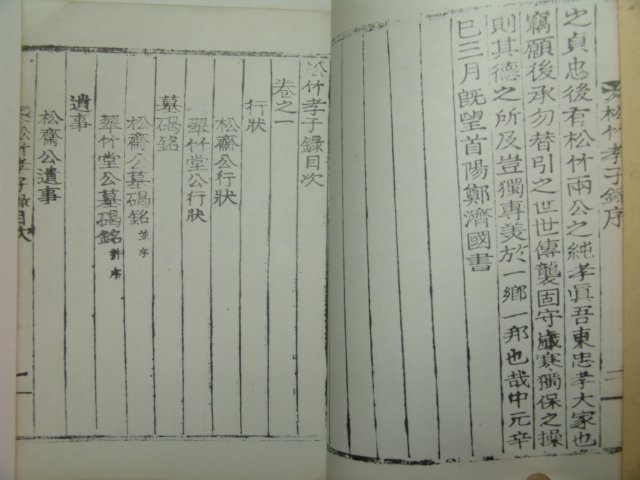 松竹孝子錄序
之貞忠後有松竹兩公之純孝眞吾東忠孝大家也
竊願後承勿替引之世世傳襲固守歲寒獨保之操
則其德之所及豈獨專美於一鄕一邦也哉中元辛
巳三月旣望首陽鄭濟國書
松竹孝子錄目次
卷之一
行狀
松齋公行狀
翠竹堂公行狀
墓碣銘
松齋公墓碣銘 並序
翠竹堂公墓碣銘 幷序
遺事
松齋公遺事
松竹孝子錄目次
一